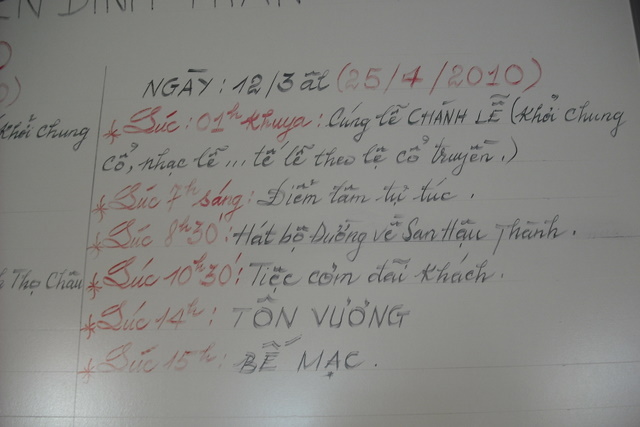 NGÀY: 12/3 âl (25/4/2010)
* Lúc: 01h khuya: Cúng tế CHÁNH LỄ (Khởi chung
cổ, nhạc lễ... tế lễ theo lệ cổ truyền.)
* Lúc 7h sáng: Điểm tâm tự túc.
* Lúc 8h30': Hát bộ Đường về San Hậu Thành.
* Lúc 10h30': Tiệc cơm đãi khách.
* Lúc 14h: TÔN VƯƠNG
* Lúc 15h: BẾ MẠC.
Khởi chung
Thọ Châu